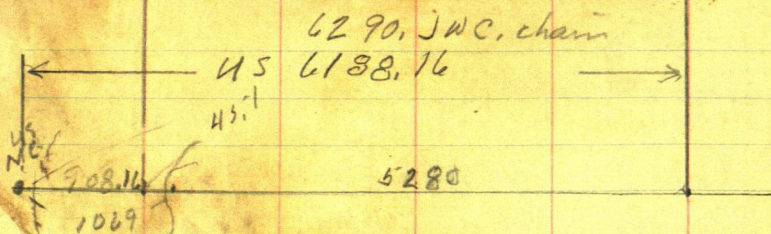 6290. JWC. chain
US 6188.16
45.1
908.16 5280
1069